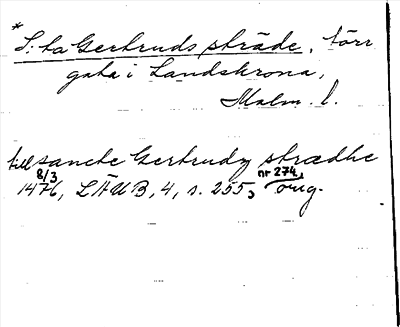 * S:ta Gertruds sträde, förr
gata i Landskrona,
Malm. l.
till sancte Gertrudz strædhe
8/3 1476, LÄUB, 4, s. 255, nr 274, orig.